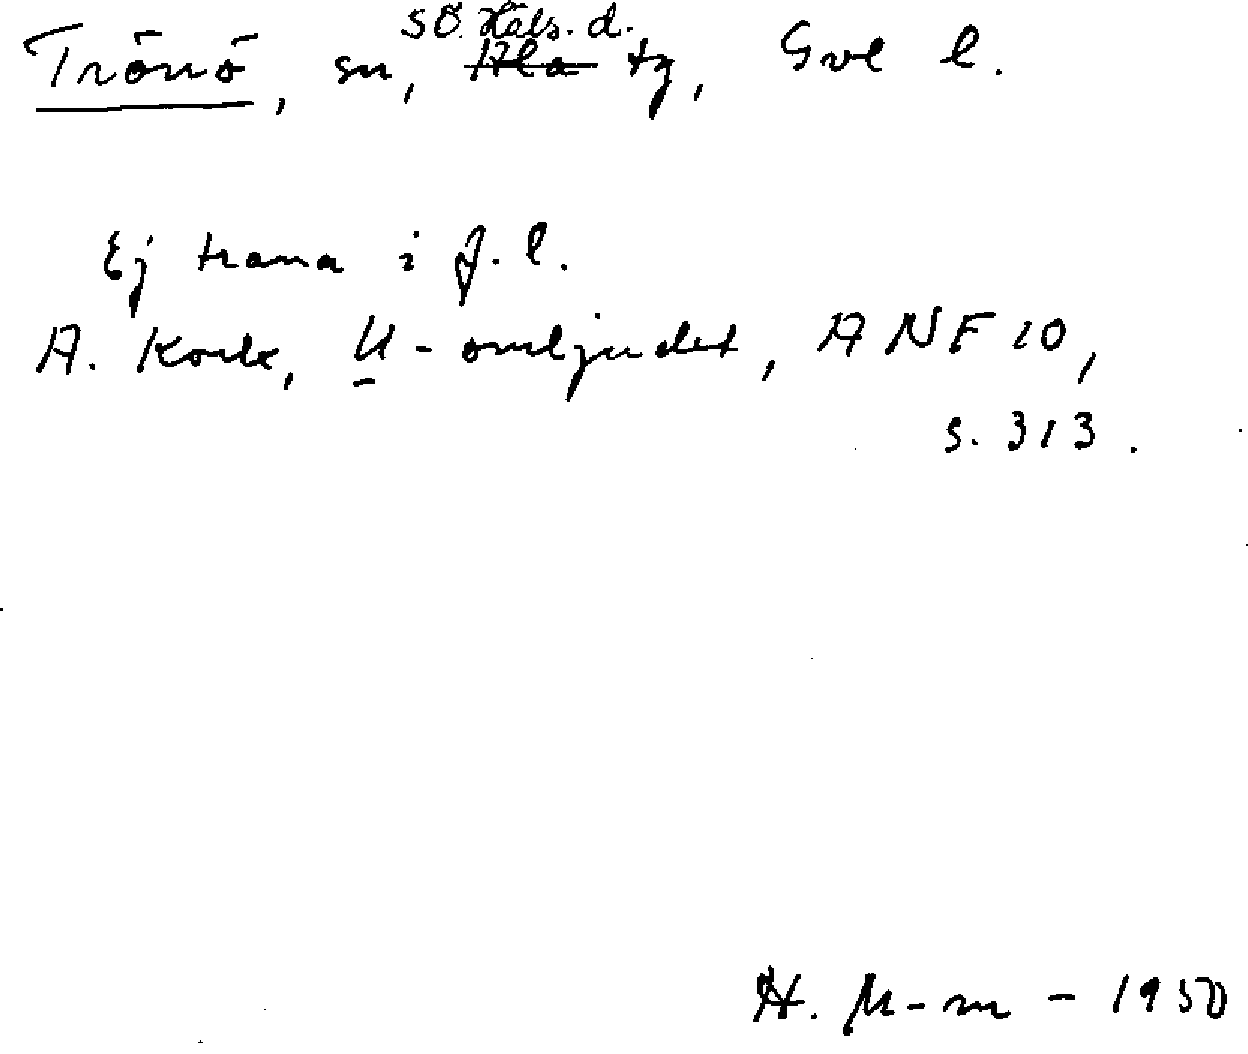 SÖ. Häls. d.
Trönö, sn, Ala tg, Gvl l.
Ej trana i f.l.
A. Kock, U-omljudet, ANF 10,
s. 313.
H. M-m - 1950